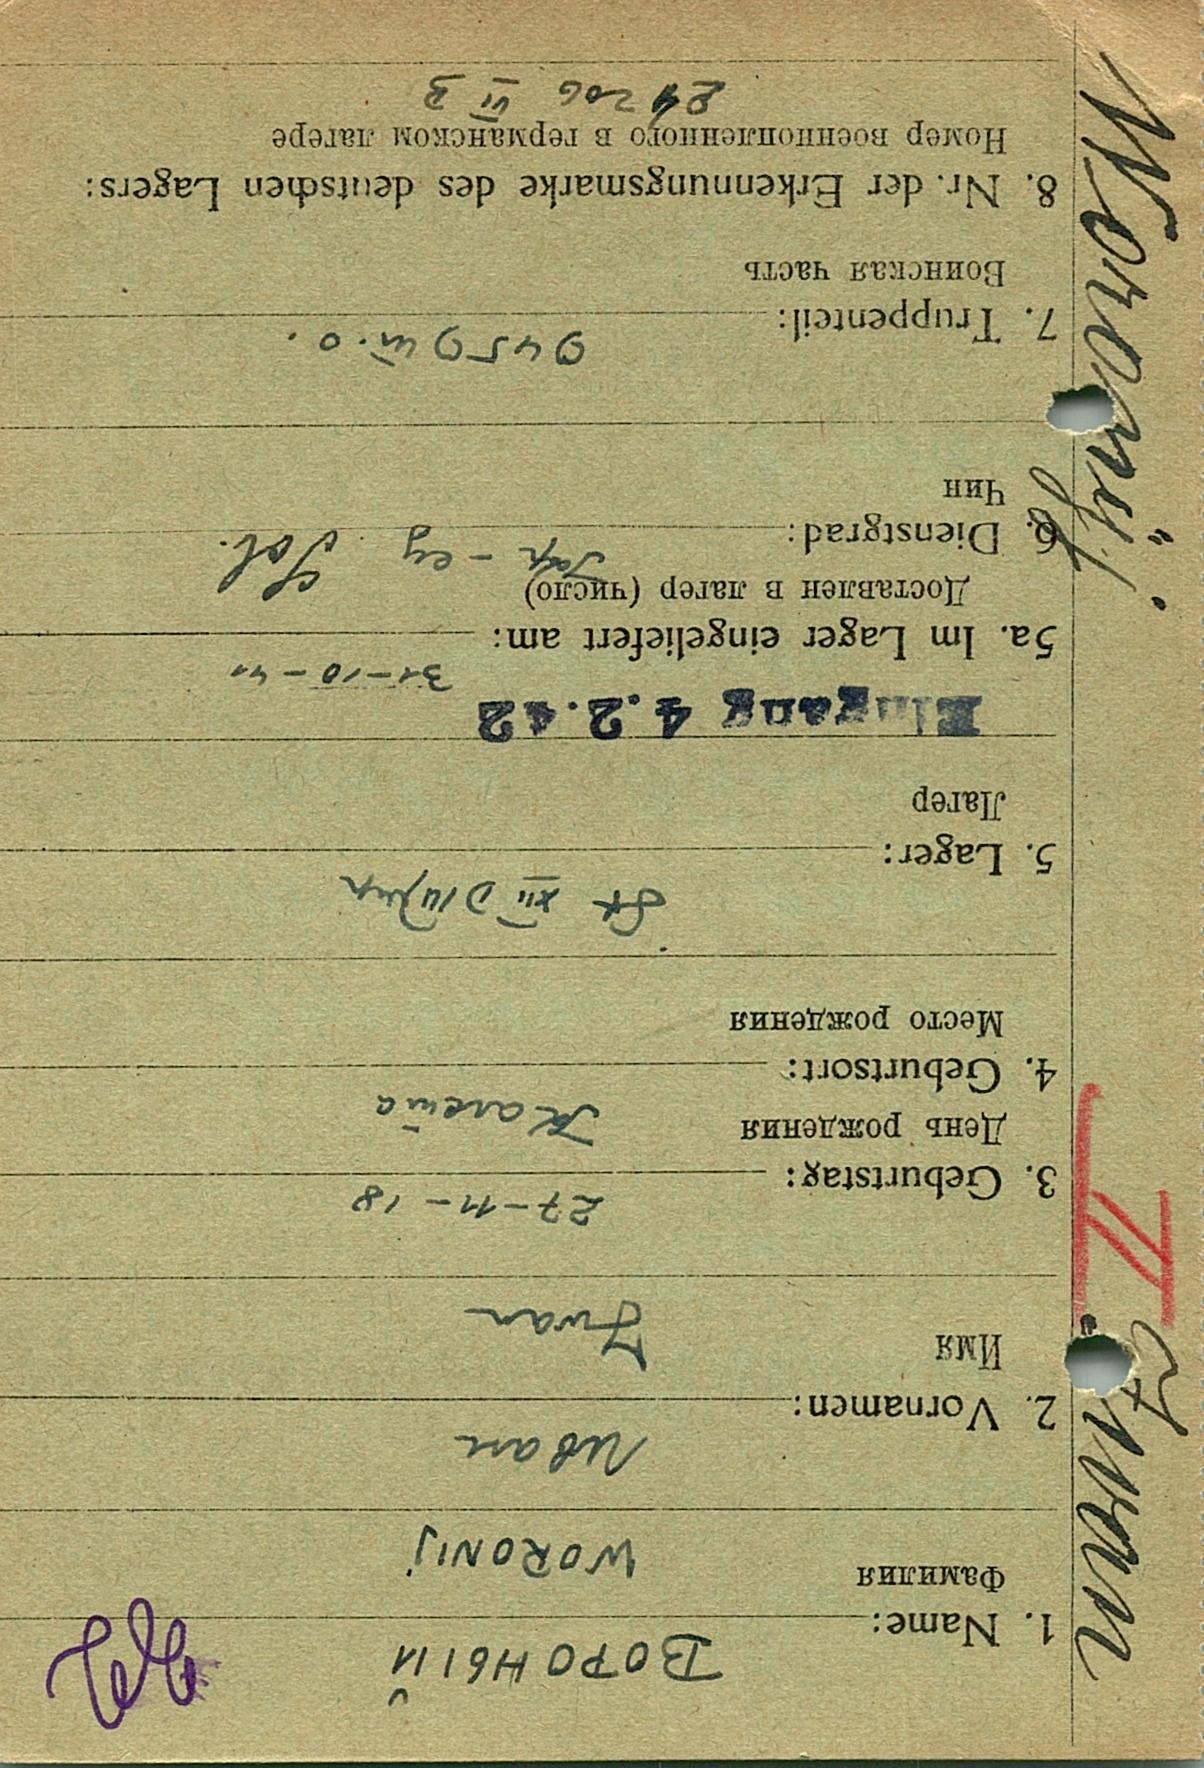 ВОРОНЫЙ
1. Name:
Фамилия
WORONIJ
Иван
2. Vornamen:
Имя
Iwan
27-11-18
3. Geburtstag:
День рождения
4. Geburtsort:
Место рождения
St XII D
5. Lager:
Лагер
Eingang 4.2.42
31-10-41
5a. Im Lager eingeliefert am:
Доставлен в лагер (число)
Sol.
6. Dienstgrad:
Чин
7. Truppenteil:
Воинская часть
8. Nr. der Erkennungsmarke des deutschen Lagers:
Номер военнопленного в германском лагере
VI B
Woronij Iwan
II